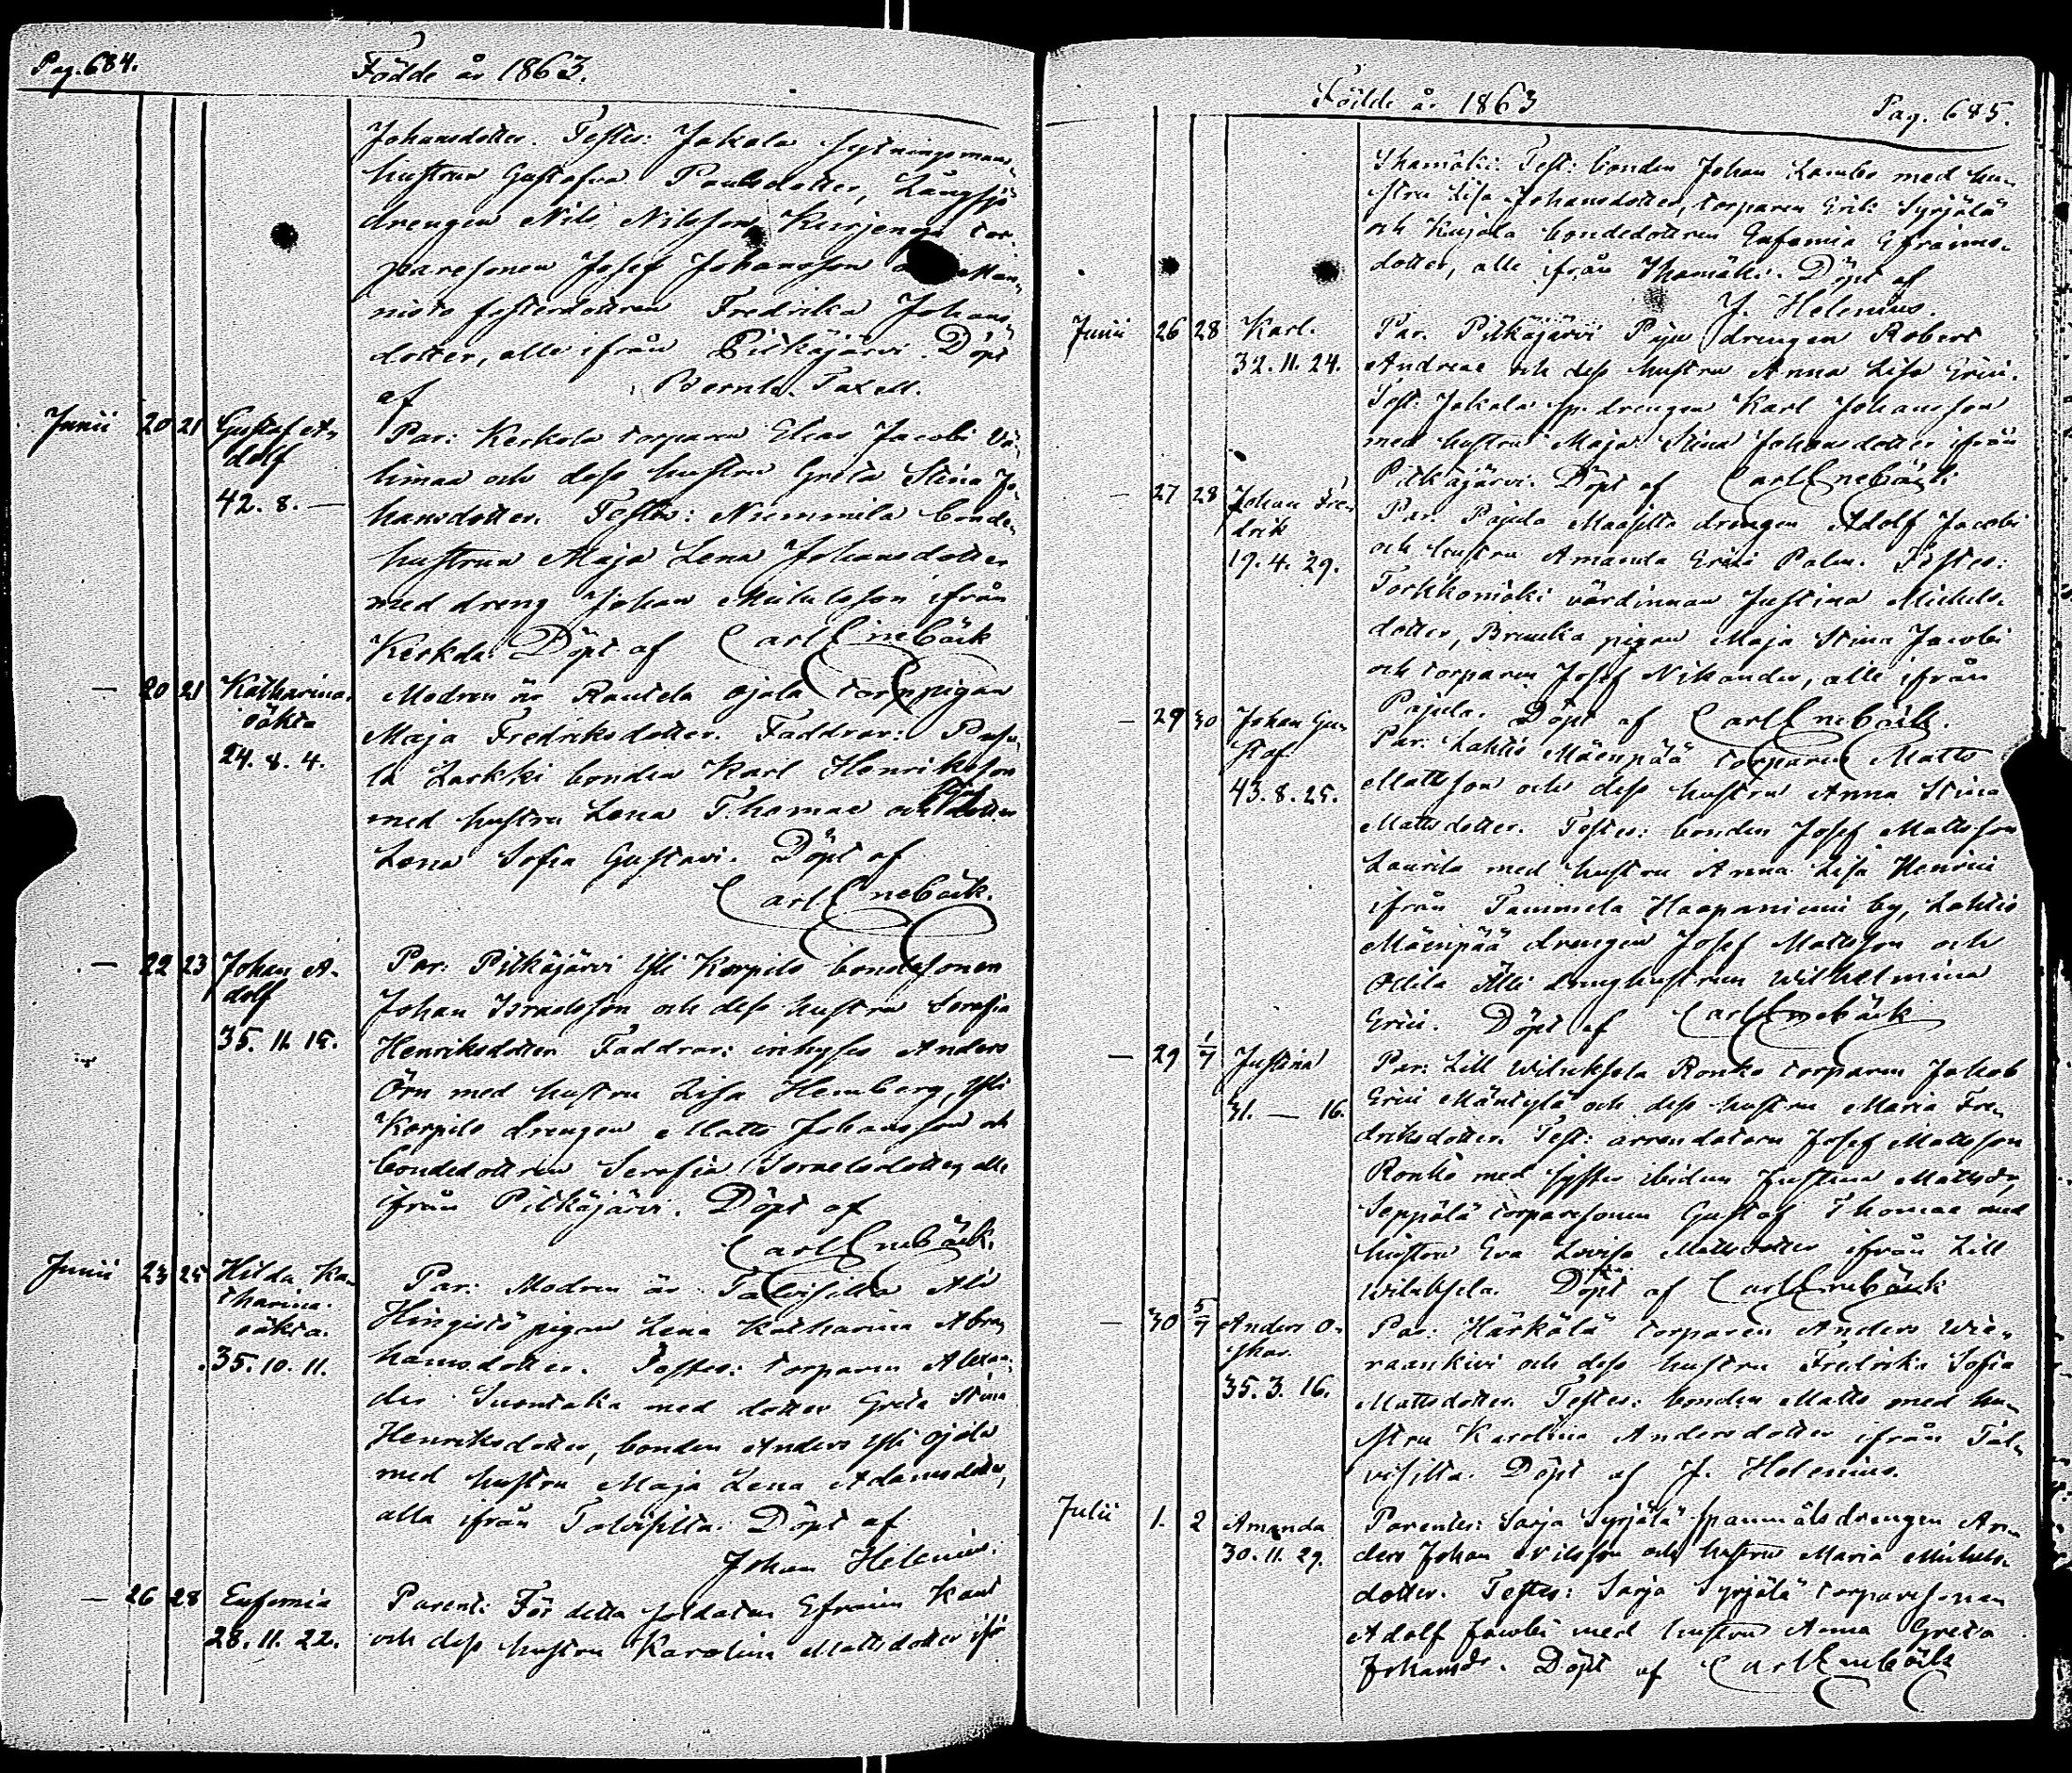 Pag. 684.
Födde år 1863.
Johansdotter. Testes: Jokala sytningsmans
hustrun Gustafva Paulsdotter, Långsjö
drengen Nils Nilsson, Kurjenoja tor-
paresonen Josef Johansson
nisto fosterdottren Fredrika Johans
dotter, alle ifrån Pitkäjärvi. Döpt
af Bernh. Taxell.
Junii 20 21 Gustaf A-
dolf
42. 8. —
Par: Kerkola torparen Elias Jacobi Vä-
limaa och dess hustru Greta Stina Jo-
hansdotter. Testes: Niemmilä bonde-
hustrun Maja Lena Johansdotter
med dreng Johan Michelsson ifrån
Kerkola. Döpt af Carl Enebäck
— 20 21 Katharina.
oäkta
24. 8. 4.
Modren är Rautela Ojala torp pigan
Maja Fredriksdotter. Faddrar: Paju-
la Larkki bonden Karl Henriksson
med hustru Lena Thomae och dotter
Lena Sofia Gustavi. Döpt af
Carl Enebäck.
— 22 23 Johan A-
dolf
35. 11. 15.
Par: Pitkäjärvi Yli Korpilo bondesonen
Johan Israelsson och dess hustru Serafia
Henriksdotter. Faddrar: inhyses Anders
Örn med hustru Lisa Hemberg, Yli
Korpilo drengen Matts Johansson och
bondedottren Serafia Israelsdotter, alle
ifrån Pitkäjärvi. Döpt af
Carl Enebäck.
Junii 23 25 Hilda Ka-
tharina.
oäkta.
35. 10. 11.
Par: Modren är Talvisilla Ali
Hingistö pigan Lena Katharina Abra-
hamsdotter. Testes: torparen Alexan-
der Suontaka med dotter Greta Stina
Henriksdotter, bonden Anders Yli Ojala
med hustru Maja Lena Adamsdotter,
alla ifrån Talvisilla. Döpt af
Johan Helenius.
— 26 28 Eufemia
28. 11. 22.
Parent: För detta soldaten Efraim Kant
och dess hustru Karolina Mattsdotter ifr.
Födde år 1863
Pag. 685.
Ihamäki: Test: bonden Johan Lambo med hu-
stru Lisa Johansdotter, torparen Erik Syrjälä
och Kujala bondedottren Eufemia Efraims-
dotter, alle ifrån Ihamäki. Döpt af
J. Helenius.
Junii 26 28 Karl.
32. 11. 24.
Par. Pitkäjärvi Paju drengen Robert
Andreae och dess hustru Anna Lisa Erici.
Test: Jokala sp. drengen Karl Johansson
med hustru Maja Stina Johansdotter ifrån
Pitkäjärvi. Döpt af Carl Enebäck
— 27 28 Johan Fre-
drik
19. 4. 29.
Par. Pajula Maasilta drengen Adolf Jacobi
och hustru Amanda Erici Palm. Testes:
Torkkomäki värdinnan Justina Michels-
dotter, pigan Maja Stina Jacobi
och torparen Josef Nikander, alle ifrån
Pajula. Döpt af Carl Enebäck.
— 29 30 Johan Gu-
staf
43. 8. 25.
Par: Lahtis Mäenpää torparen Matts
Mattsson och dess hustru Anna Stina
Mattsdotter. Testes: bonden Josef Mattsson
Laurila med hustru Anna Lisa Henrici
ifrån Tammela Haapaniemi by, Lahtis
Mäenpää drengen Josef Mattsson och
Ottila Alli drenghustrun Wilhelmina
Erici. Döpt af Carl Enebäck
— 29 1/7 Justina
31. — 16.
Par: Lill Wiluksela Ronko torparen Jakob
Erici Mäntylä och dess hustru Maria Fre-
driksdotter. Test: arrendatorn Josef Mattsson
Ronko med syster ibidem Justina Mattsdr,
Seppälä torparesonen Gustaf Thomae med
hustru Eva Lovisa Mattsdotter ifrån Lill
Wiluksela. Döpt af Carl Enebäck
— 30 5/7 Anders O-
skar
35. 3. 16.
Par: Härkälä torparen Anders Wie-
raankivi och dess hustru Fredrika Sofia
Mattsdotter. Testes: bonden Matts med hu-
stru Karolina Andersdotter ifrån Tal-
visilla. Döpt af J. Helenius.
Julii 1. 2 Amanda
30. 11. 29.
Parentes: Sarja Syrjälä spannmålsdrengen An-
ders Johan Nilsson och hustru Maria Michels-
dotter. Testes: Sarja Syrjälä torparesonen
Adolf Jacobi med hustru Anna Greta
Johansdr. Döpt af Carl Enebäck